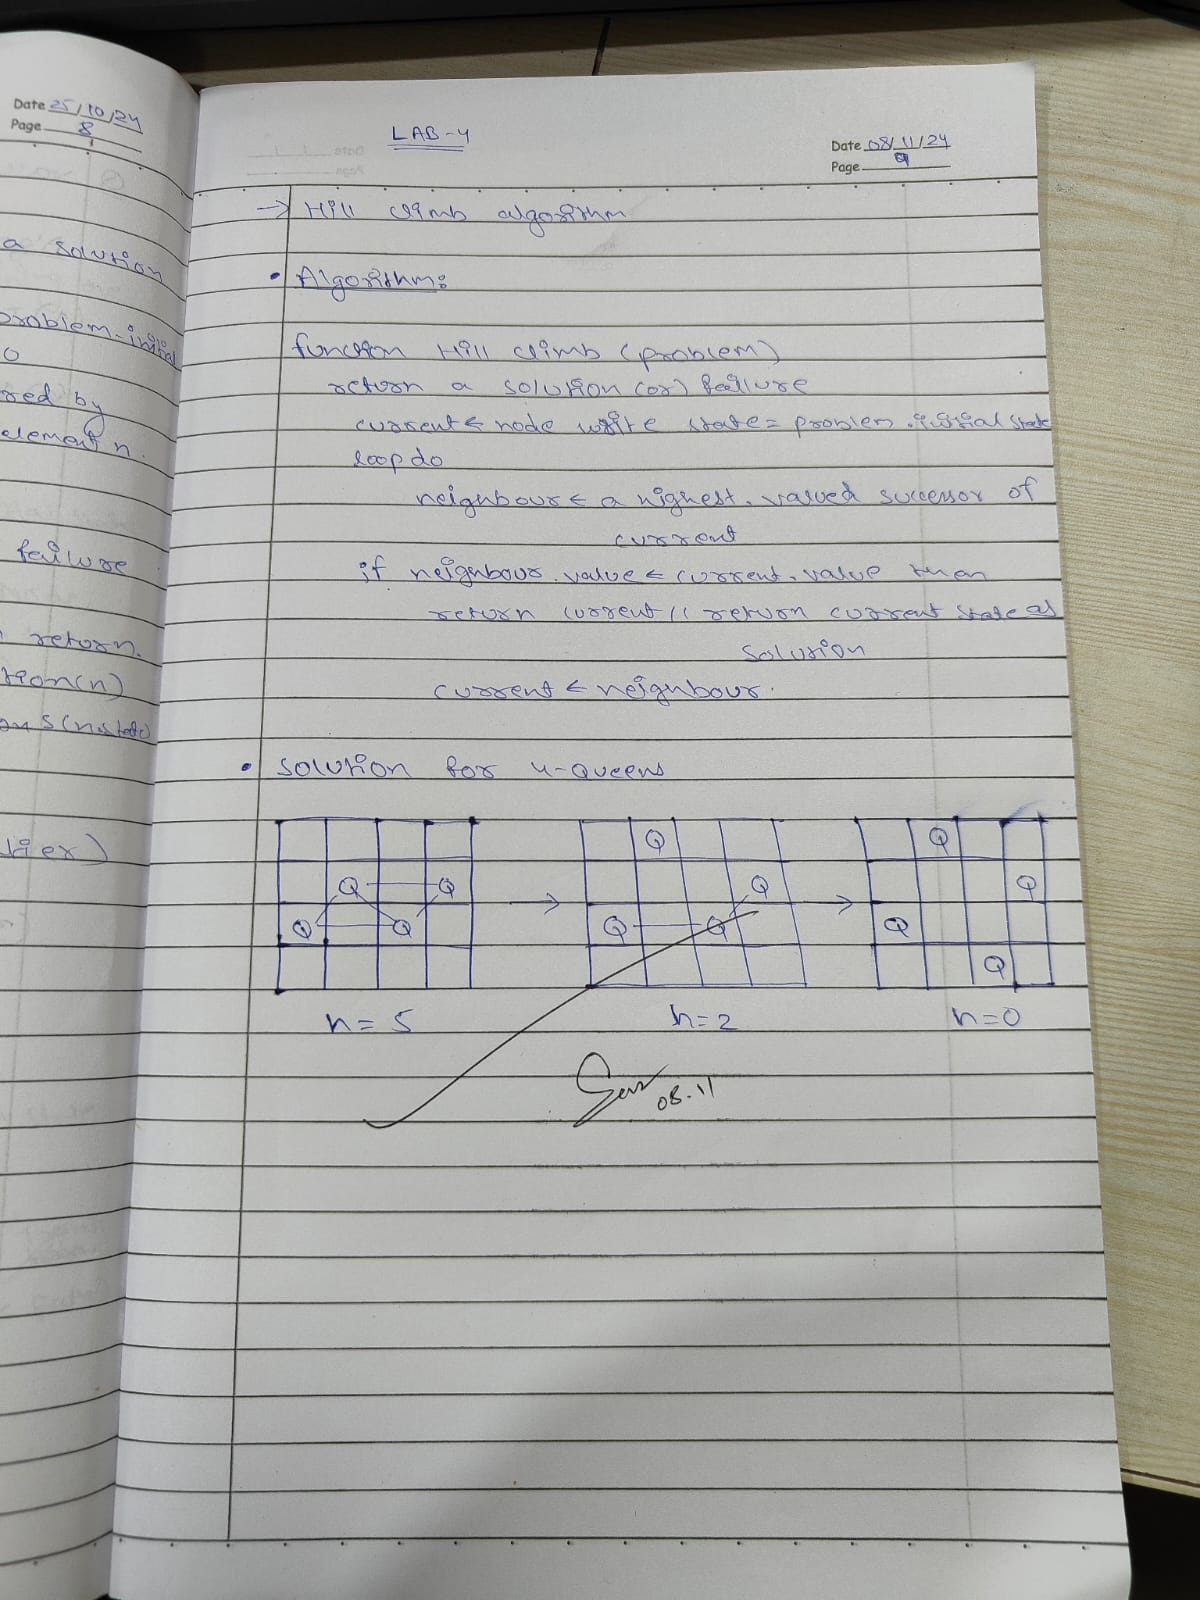 Date 25/10/24
Page 8
a solution
problem-initial
red by
element n.
failure
return.
tion(n)
S(n.state)
LAB-4
Date 08/11/24
Page 9
→ Hill climb algorithm
• Algorithm:
function Hill climb (problem)
return a solution (or) failure
current ← node write state = problem.initial state
loop do
neighbour ← a highest.valued successor of
current
if neighbour.value ≤ current.value then
return current // return current state as
solution
current ← neighbour.
• solution for 4-Queens
Q Q
Q Q
h = 5
→
Q
Q
Q Q
h = 2
→
Q
Q
Q
Q
h = 0
08.11